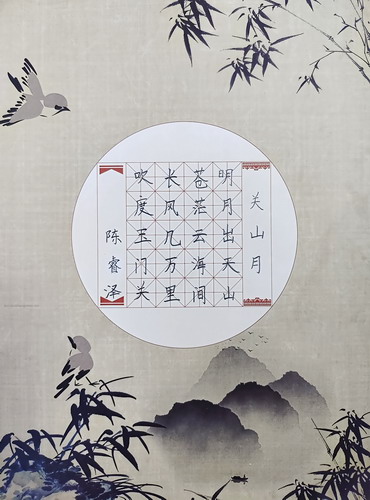 关山月
明月出天山
苍茫云海间
长风几万里
吹度玉门关
陈睿泽